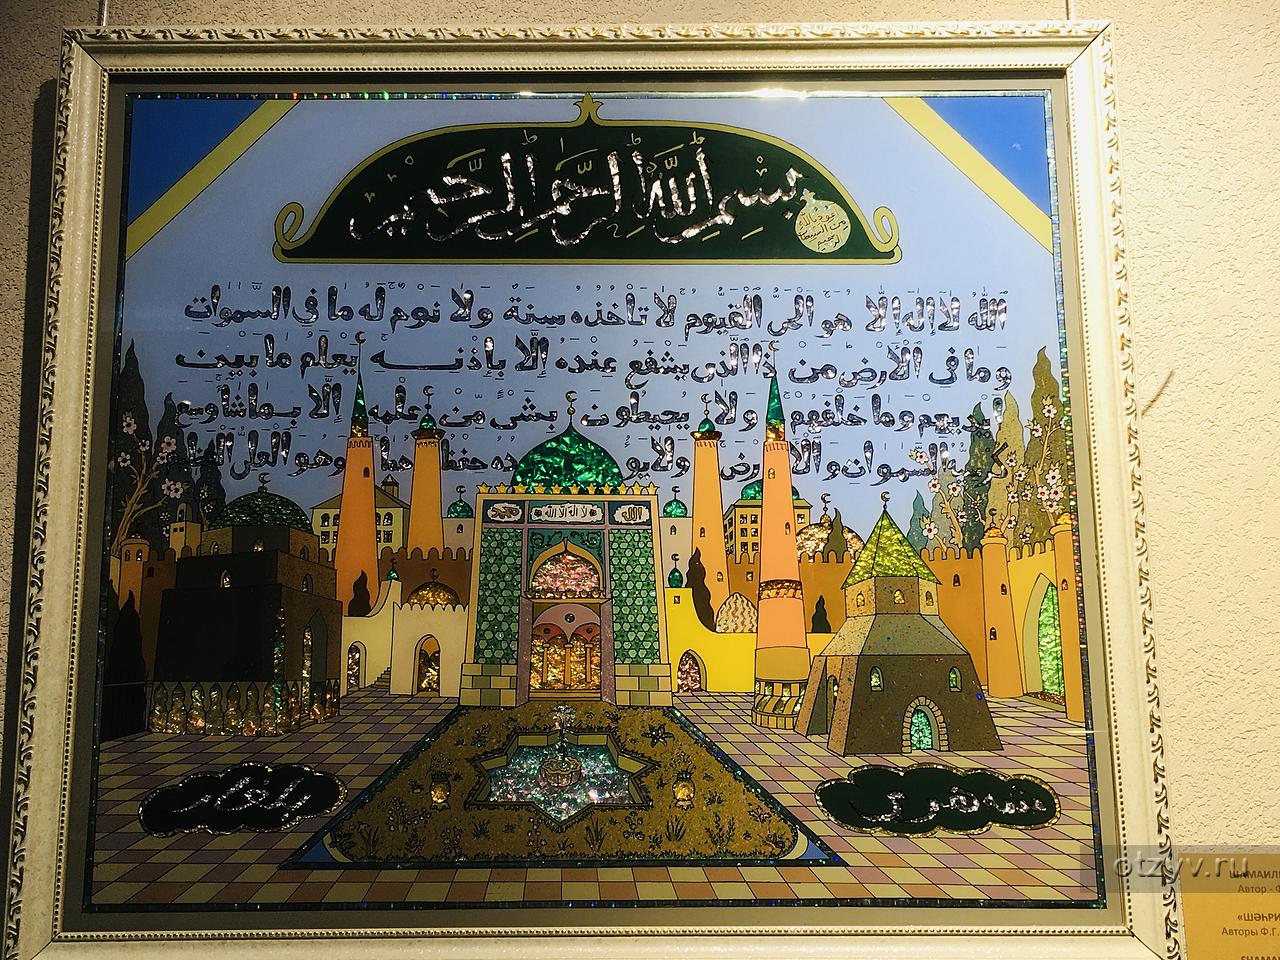 بسم الله الرحمن الرحيم
الله لا إله إلا هو الحي القيوم لا تأخذه سنة ولا نوم له ما في السموات
وما في الارض من ذا الذي يشفع عنده إلا بإذنه يعلم ما بين
يديهم وما خلفهم ولا يحيطون بشئ من علمه إلا بما شا وسع
السموات والارض ولا يو ده حفظهما وهو العلي العظيم
محمد لا اله الا الله الله
شهري بلغار
otzyv.ru
ШАМАИЛ
Автор - Ф
«ШӘҺРИ
Авторы Ф.Г.